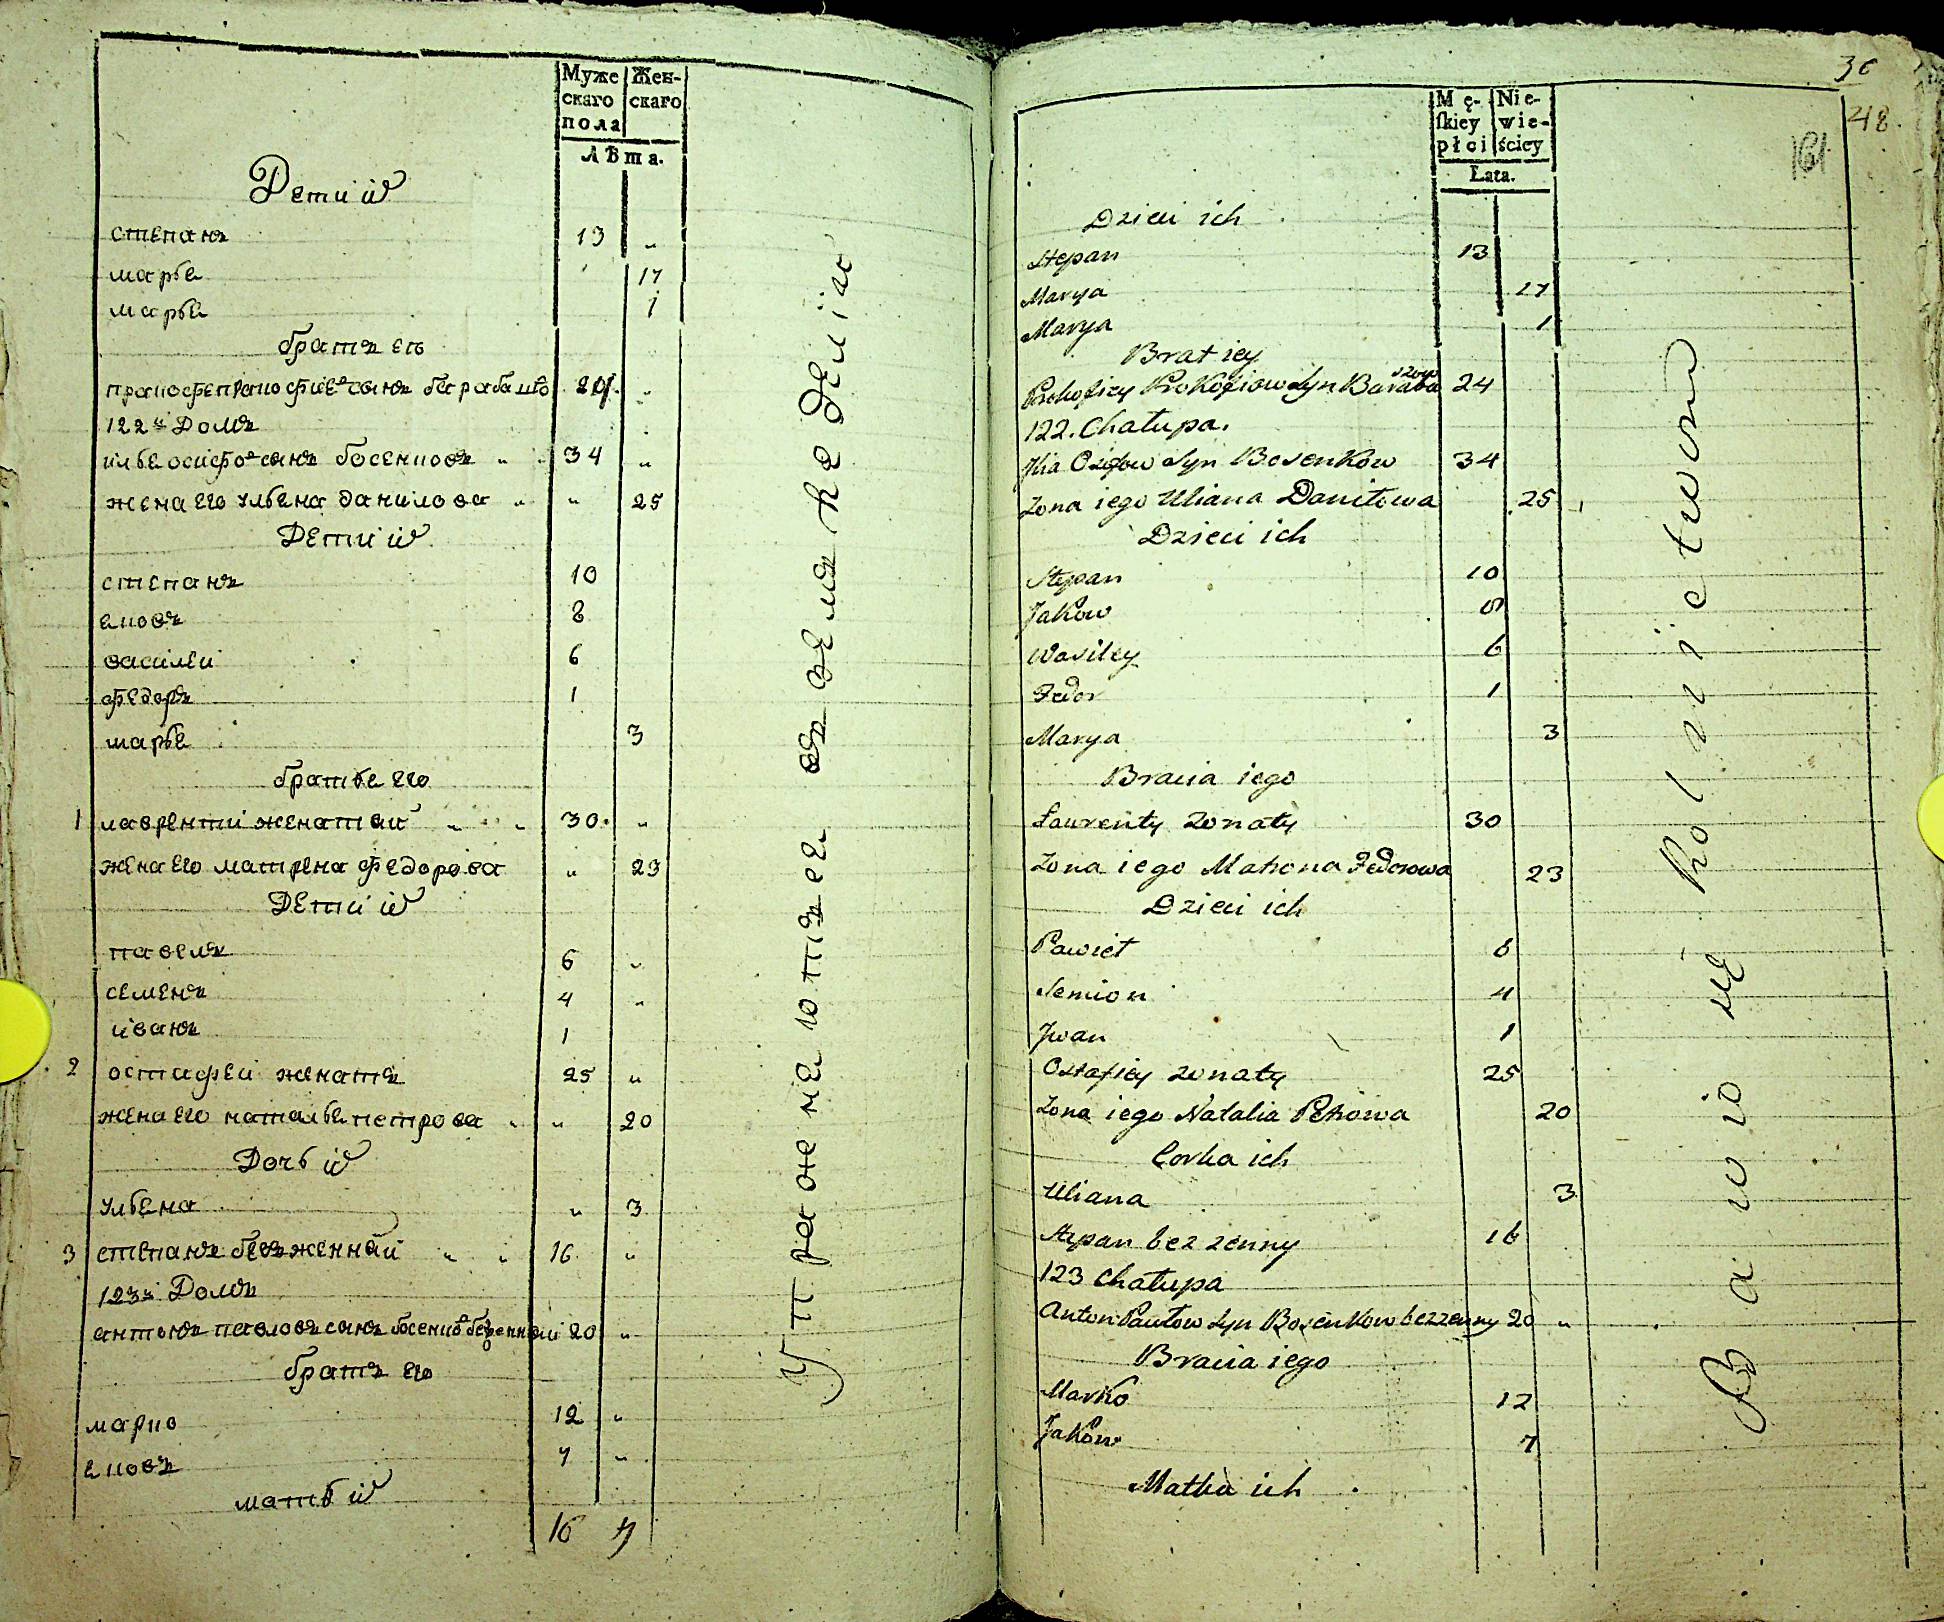 Муже Жен-
скаго скаго
пола
Лѣта.
Дети их
степанъ 13 „
марья 17
марья 1
братъ ея
прокофеи прокофиевъ сынъ барабашо 24. „
122й Домъ
илья осифовъ сынъ босенковъ „ 34 „
жена его ульяна данилова „ „ 25
Дети их
степанъ 10
яковъ 8
василеи 6
федоръ 1
марья 3
братья его
1 лаврентии женатаи „ „ 30. „
жена его матрена федорова „ 23
Дети их
павелъ 6 „
семенъ 4 „
иванъ 1
2 остафеи женатъ 25 „
жена его наталья петрова „ „ 20
Дочь их
ульяна „ 3
3 степанъ безженнаи „ „ 16 „
123й Домъ
антонъ павловъ сынъ босенковъ безженнаи 20 „
братъя его
марко 12 „
яковъ 7 „
мать их
16 7
Упражнеютцъея въ землеределiас
36
48.
161
Mę- Nie-
skiey wie-
płci ściey
Łata.
Dzieci ich
Stepan 13
Marya 17
Marya 1
Brat iey
Prokofiey Prokofiow Syn Barabaszow 24
122. Chałupa.
Jlia Osifow Syn Bosenkow 34
Zona iego Uliana Daniłowa 25
Dzieci ich
Stepan 10
Jakow 8
Wasiley 6
Fedor 1
Marya 3
Bracia iego
Laurenty zonaty 30
Zona iego Matrona Fedorowa 23
Dzieci ich
Pawieł 6
Semion 4
Jwan 1
Ostafiey zonaty 25
Zona iego Natalia Petrowa 20
Corka ich
Uliana 3
Stepan bez zenny 16
123 Chałupa
Anton Pawłow Syn Bosenkow bezzenny 20 „
Bracia iego
Marko 12
Jakow 7
Matka ich
Bawią się Rolnictwom